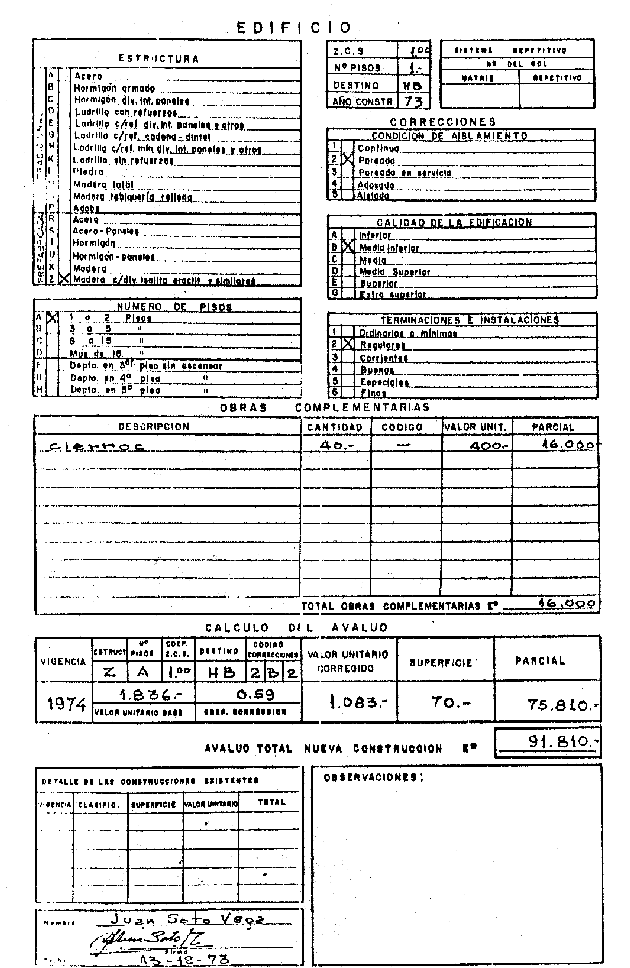 EDIFICIO
ESTRUCTURA
A Acero
B Hormigón armado
C Hormigón div. int. paneles
D Ladrillo con refuerzos
E Ladrillo c/ref. div. int. paneles y otros
G Ladrillo c/ref. cadena-dintel
H Ladrillo c/ref. mín div. int. paneles y otros
K Ladrillo sin refuerzos
Piedra
Madera total
Madera tabiquería rellena
Adobe
Acero
Acero-Paneles
Hormigón
Hormigón-paneles
Madera
Z X Madera c/div. and similares
NUMERO DE PISOS
A X 1 a 2 Pisos
B 3 a 5 "
C 6 a 15 "
D Más de 15 "
F Depto. en 3er piso sin ascensor
Depto. en 4º piso "
H Depto. en 5º piso "
Z.C.S 1.00
Nº PISOS 1.-
DESTINO HB
AÑO CONSTR 73
SISTEMA REPETITIVO
Nº DEL ROL
MATRIZ REPETITIVO
CORRECCIONES
CONDICION DE AISLAMIENTO
1 Continua
2 X Pareada
3 Pareada en servicio
4 Adosada
5 Aislada
CALIDAD DE LA EDIFICACION
A Inferior
B X Media Inferior
C Media
D Media Superior
E Superior
G Extra superior
TERMINACIONES E INSTALACIONES
1 Ordinarias o mínimas
2 X Regulares
3 Corrientes
4 Buenas
5 Especiales
6 Finas
OBRAS COMPLEMENTARIAS
DESCRIPCION CANTIDAD CODIGO VALOR UNIT. PARCIAL
cierros 40.- — 400.- 16.000
TOTAL OBRAS COMPLEMENTARIAS Eº 16.000
CALCULO DEL AVALUO
VIGENCIA ESTRUCT Nº PISOS COEF. Z.C.S. DESTINO CODIGO CORRECCIONES VALOR UNITARIO CORREGIDO SUPERFICIE PARCIAL
Z A 1.00 HB 2 B 2
1974 1.836.- 0.59 1.083.- 70.- 75.810.-
VALOR UNITARIO BASE COEF. CORRECCION
AVALUO TOTAL NUEVA CONSTRUCCION Eº 91.810.-
DETALLE DE LAS CONSTRUCCIONES EXISTENTES
VIGENCIA CLASIFIC. SUPERFICIE VALOR UNITARIO TOTAL
OBSERVACIONES:
Nombre Juan Soto Vega
Firma
13-12-73